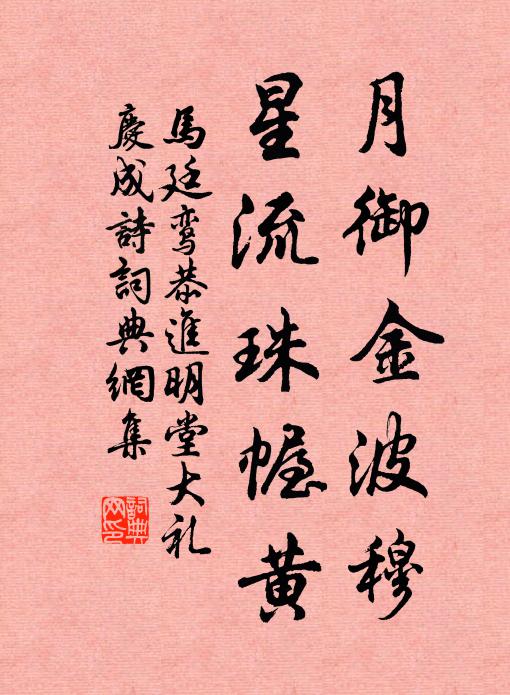 月御金波穆
星流珠幄黄
馬廷鸞恭進明堂大礼
慶成詩詞典網集
詞典網印